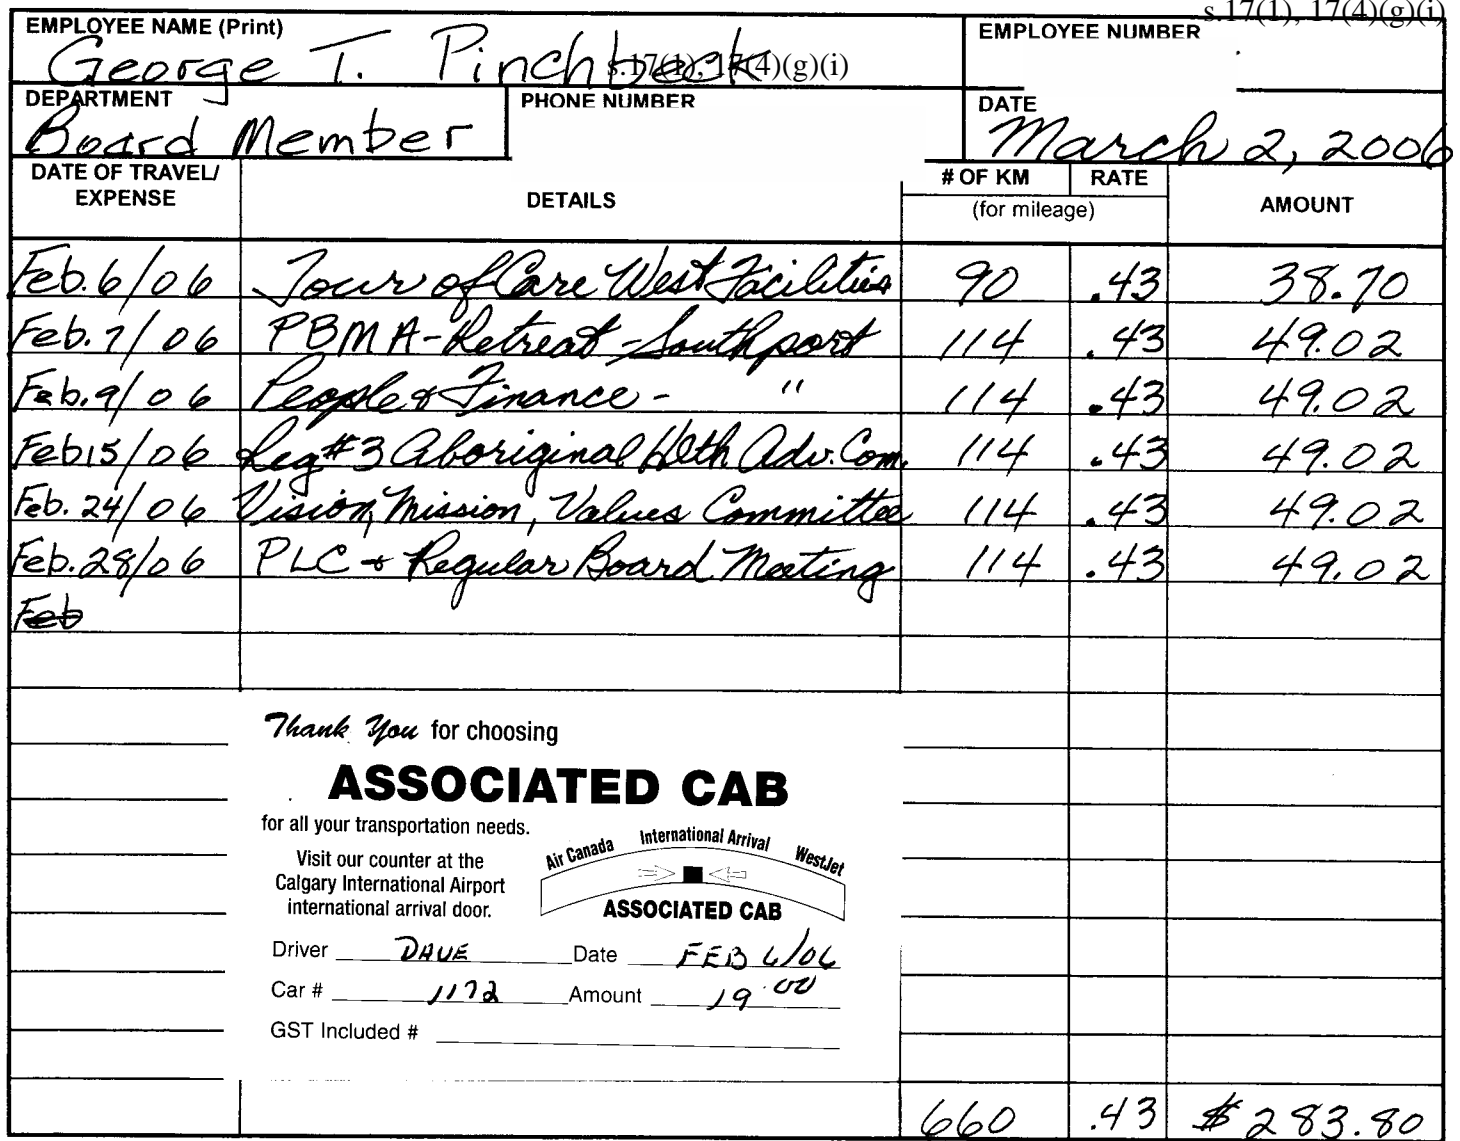 s.17(1), 17(4)(g)(i)
EMPLOYEE NAME (Print)
George T. Pinchbeck
s.17(1), 17(4)(g)(i)
EMPLOYEE NUMBER
DEPARTMENT
Board Member
PHONE NUMBER
DATE
March 2, 2006
DATE OF TRAVEL/ EXPENSE DETAILS # OF KM RATE (for mileage) AMOUNT
Feb. 6/06 Tour of Care West Facilities 90 .43 38.70
Feb. 7/06 PBMA - Retreat - Southport 114 .43 49.02
Feb. 9/06 People & Finance - " 114 .43 49.02
Feb 15/06 Leg #3 Aboriginal Hlth Adv. Com. 114 .43 49.02
Feb. 24/06 Vision, Mission, Values Committee 114 .43 49.02
Feb. 28/06 PLC + Regular Board Meeting 114 .43 49.02
Feb
Thank You for choosing
ASSOCIATED CAB
for all your transportation needs.
Visit our counter at the
Calgary International Airport
international arrival door.
Air Canada International Arrival WestJet
ASSOCIATED CAB
Driver DAVE Date FEB 6/06
Car # 1172 Amount 19.00
GST Included #
660 .43 $283.80